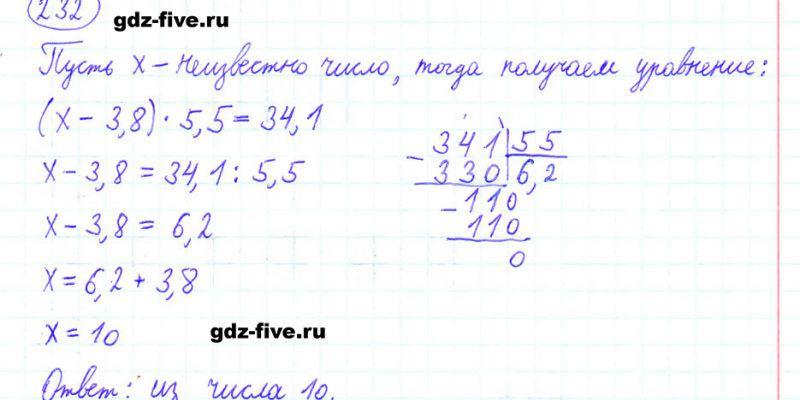 232
gdz-five.ru
Пусть x – неизвестно число, тогда получаем уравнение:
(x - 3,8) · 5,5 = 34,1
x - 3,8 = 34,1 : 5,5
x - 3,8 = 6,2
x = 6,2 + 3,8
x = 10
341 55
- 330 6,2
- 110
110
0
gdz-five.ru
Ответ: из числа 10.